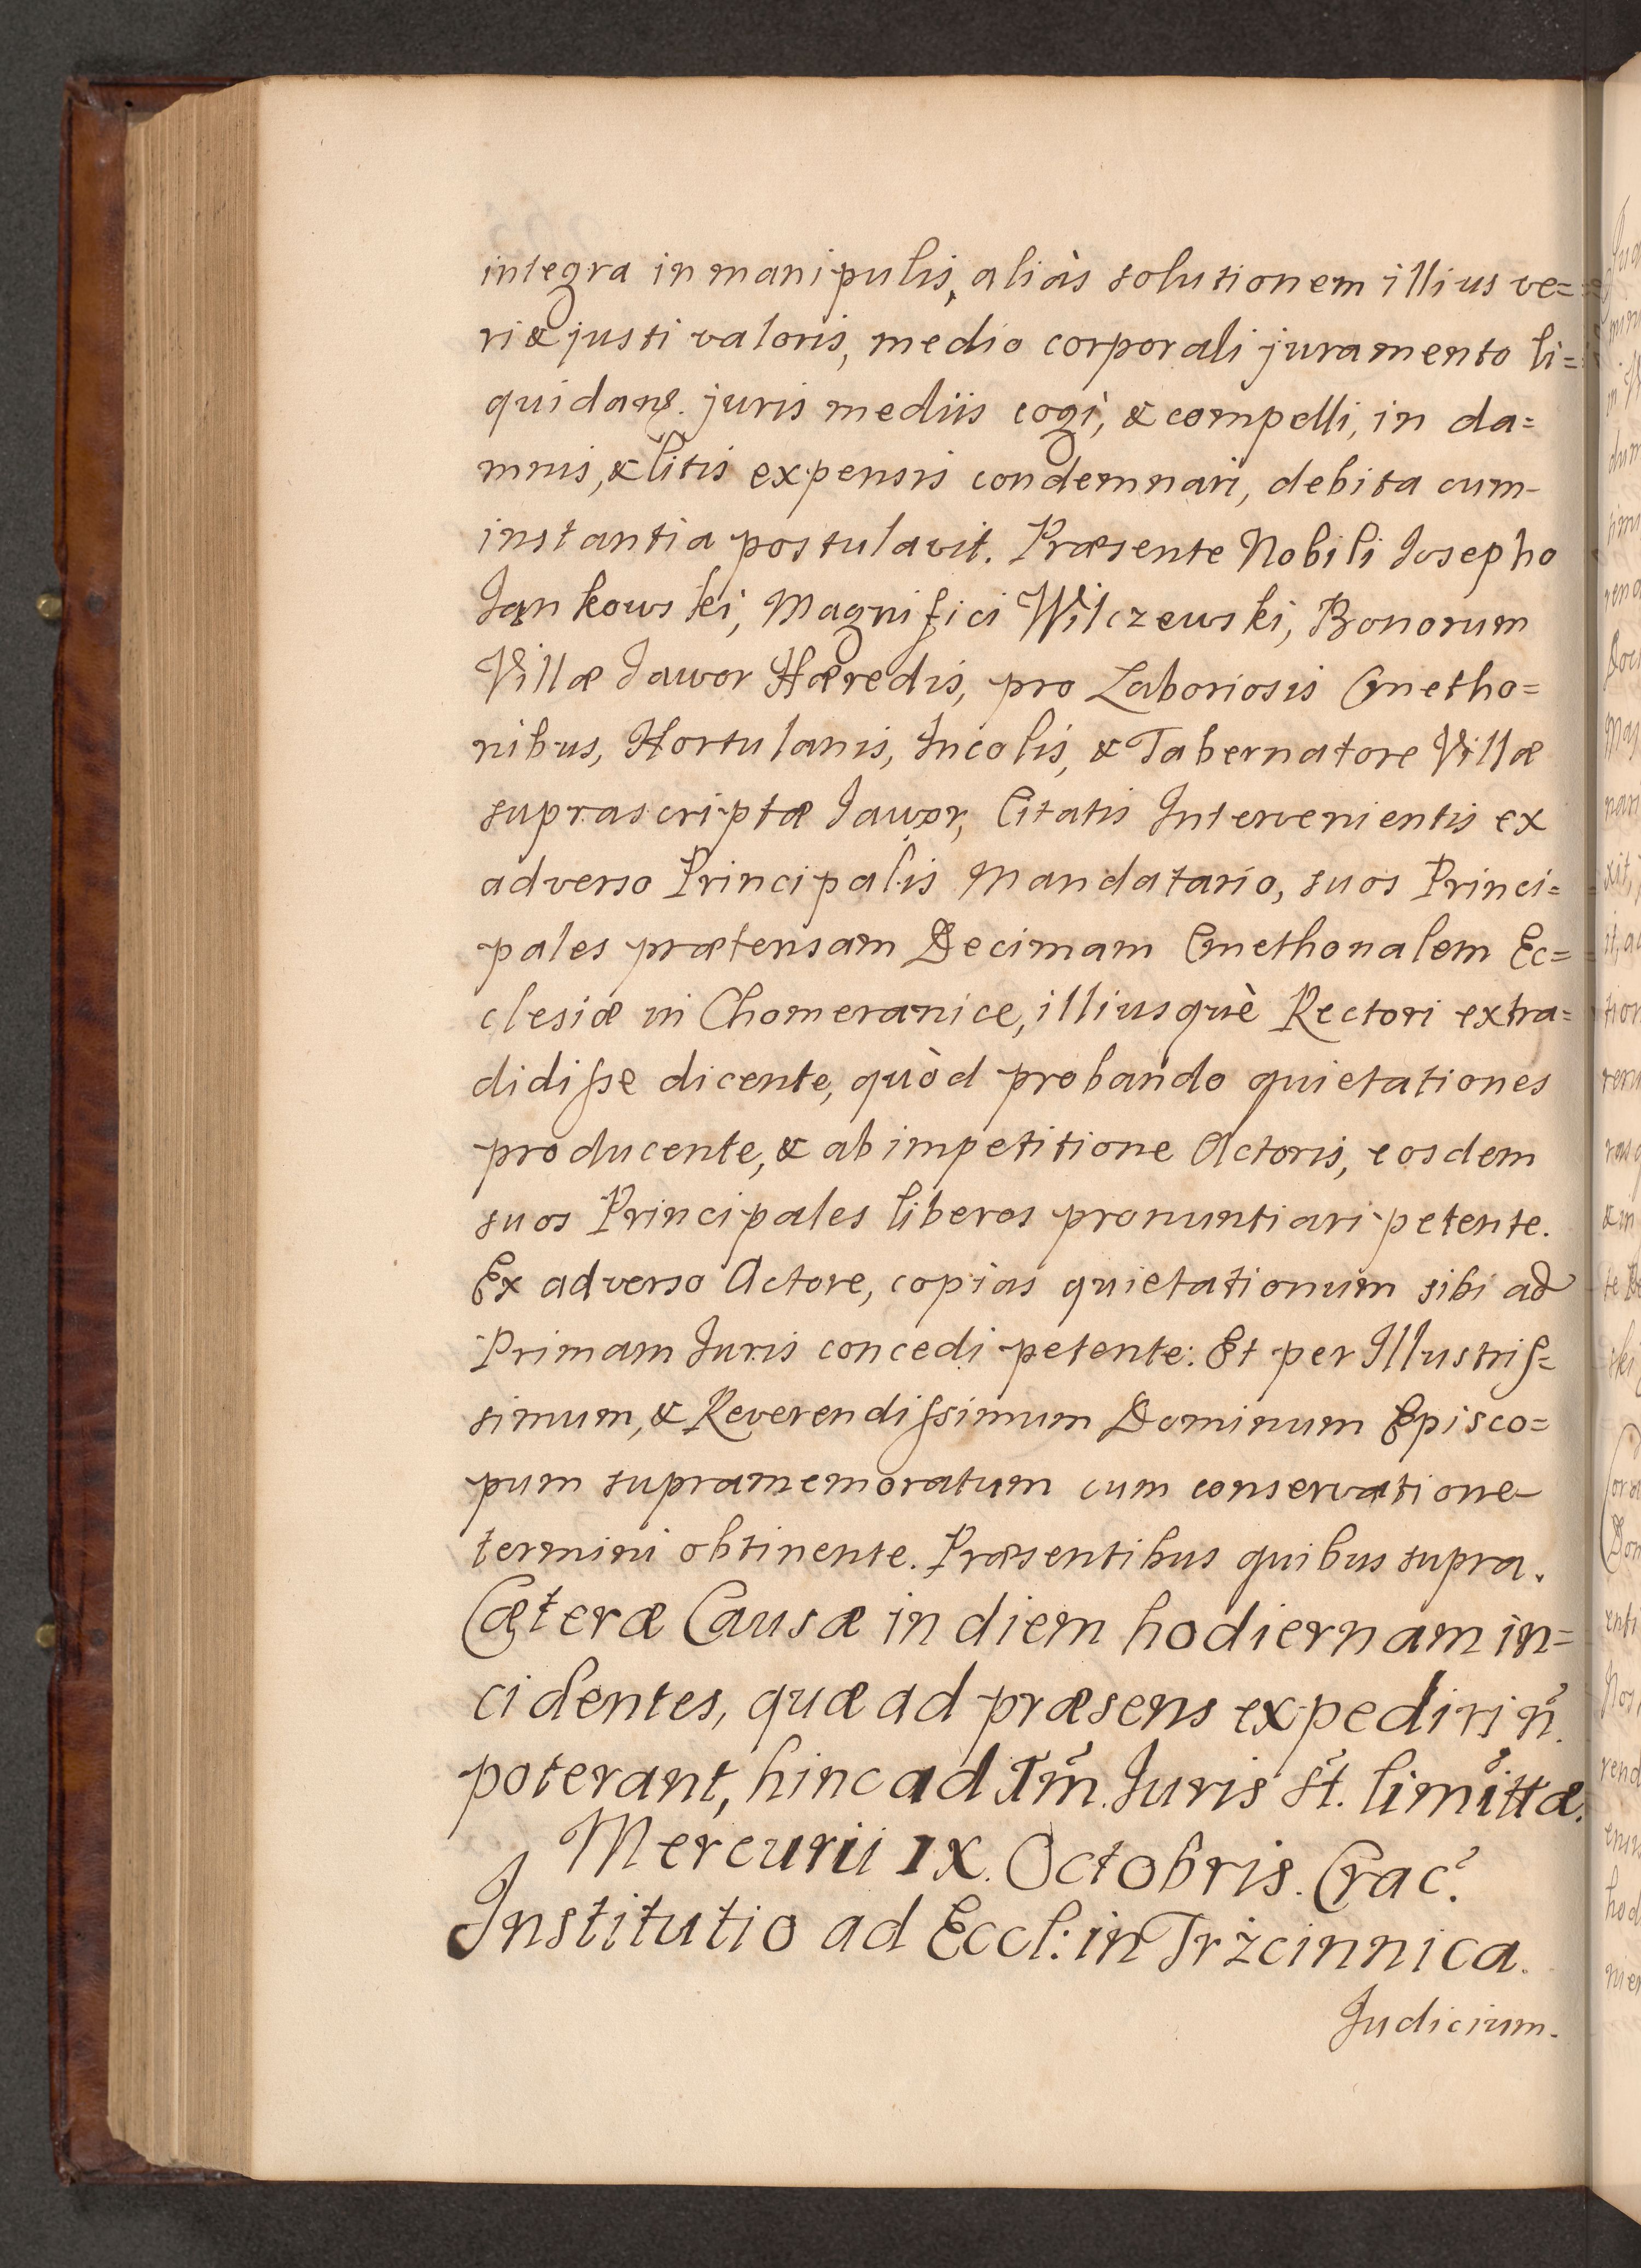 integra in manipulis, aliàs solutionem illius ve=
ri & justi valoris, medio corporali juramento li=
quidang. juris mediis cogi, & compelli, in da=
mnis, & litis expensis condemnari, debita cum
instantia postulavit. Præsente Nobili Josepho
Jankowski, Magnifici Wilczewski, Bonorum
Villæ Jawor Hæredis, pro Laboriosis Cmetho=
nibus, Hortulanis, Incolis, & Tabernatore Villæ
suprascriptæ Jawor, Citatis Intervenientis ex
adverso Principalis Mandatario, suos Princi=
pales prætensam Decimam Cmethonalem Ec=
clesiæ in Chomeranice, illiusquè Rectori extra=
didiſse dicente, quòd probando quietationes
producente, & ab impetitione Actoris, eosdem
suos Principales liberos pronuntiari petente.
Ex adverso Actore, copias quietationum sibi ad
Primam Juris concedi petente: Et per Illustriſ=
simum, & Reverendiſsimum Dominum Episco=
pum supramemoratum cum conservatione
termini obtinente. Præsentibus quibus supra.
Cæteræ Causæ in diem hodiernam in=
cidentes, quæ ad præsens expediri ñ.
poterant, hinc ad Im̃. Juris st̃. limĩttæ.
Mercurii IX. Octobris. Crac̃.
Institutio ad Eccl: in Trżcinnica.
Judicium.